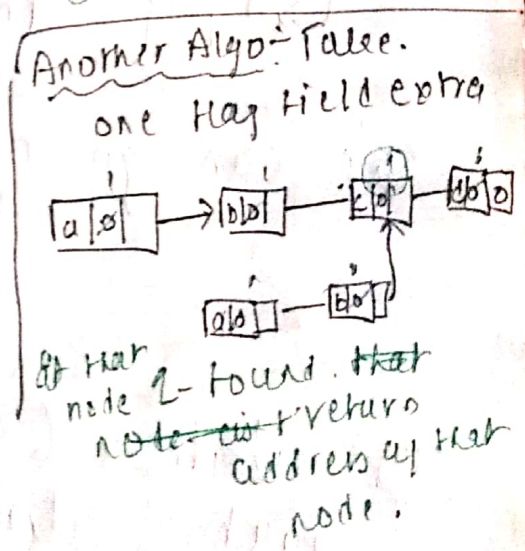 Another Algo:- Take.
one flag field extra
1 1 1 1
a 0 b 0 c 0 d 0 0
a 0 b 0
At that
node 1 found. that
note. cis return
address of that
node.